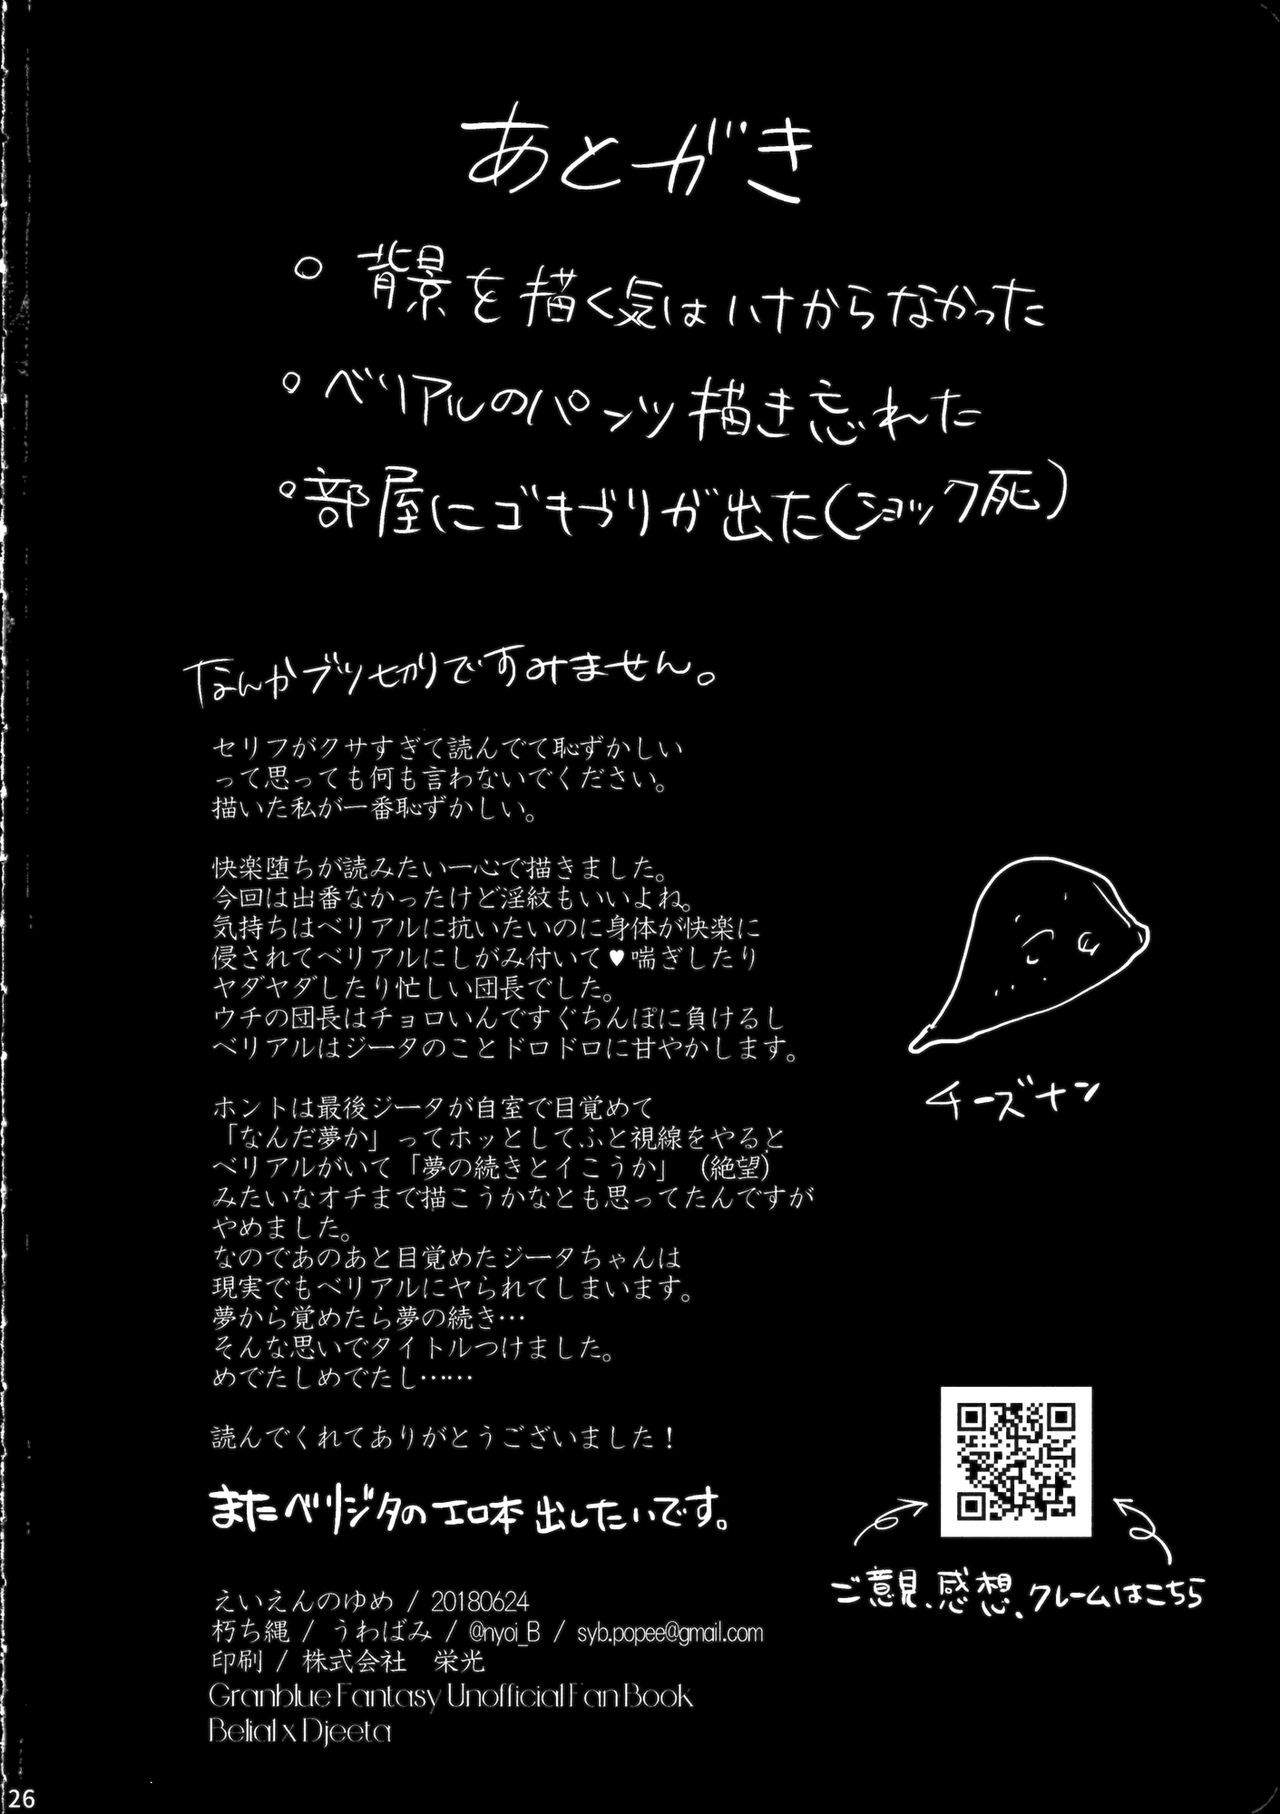 あとがき
。背景を描く気はハナからなかった
。ベリアルのパンツ描き忘れた
。部屋にゴキブリが出た(ショック死)
なんかブツ切りですみません。
セリフがクサすぎて読んでて恥ずかしい
って思っても何も言わないでください。
描いた私が一番恥ずかしい。
快楽堕ちが読みたい一心で描きました。
今回は出番なかったけど淫紋もいいよね。
気持ちはベリアルに抗いたいのに身体が快楽に
侵されてベリアルにしがみ付いて♥喘ぎしたり
ヤダヤダしたり忙しい団長でした。
ウチの団長はチョロいんですぐちんぽに負けるし
ベリアルはジータのことドロドロに甘やかします。
チーズナン
ホントは最後ジータが自室で目覚めて
「なんだ夢か」ってホッとしてふと視線をやると
ベリアルがいて「夢の続きとイこうか」(絶望)
みたいなオチまで描こうかなとも思ってたんですが
やめました。
なのであのあと目覚めたジータちゃんは
現実でもベリアルにヤられてしまいます。
夢から覚めたら夢の続き…
そんな思いでタイトルつけました。
めでたしめでたし……
読んでくれてありがとうございました！
またベリジタのエロ本出したいです。
ご意見、感想、クレームはこちら
えいえんのゆめ / 20180624
朽ち縄 / うわばみ / @nyoi_B / syb.popee@gmail.com
印刷 / 株式会社 栄光
Granblue Fantasy Unofficial Fan Book
Belial x Djeeta
26